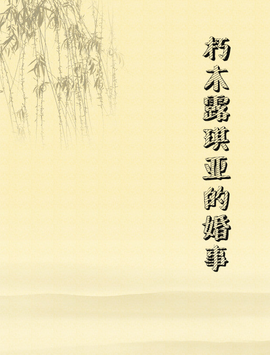 朽木露琪亚的婚事